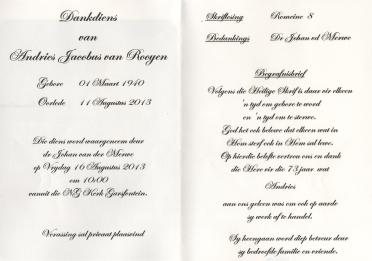 Dankdiens
van
Andries Jacobus van Rooyen
Gebore 01 Maart 1940
Oorlede 11 Augustus 2013
Die diens word waargeneem deur
dr Johan van der Merwe
op Vrydag 16 Augustus 2013
om 10:00
vanuit die NG Kerk Garsfontein.
Verassing sal privaat plaasvind
Skriflesing Romeine 8
Bedankings Dr Johan vd Merwe
Begrafnisbrief
Volgens die Heilige Skrif is daar vir elkeen
'n tyd om gebore te word
en 'n tyd om te sterwe.
God het ook belowe dat elkeen wat in
Hom sterf ook in Hom sal lewe.
Op hierdie belofte vertrou ons en dank
die Here vir die 73 jaar wat
Andries
aan ons gelees was om ook op aarde
sy werk af te handel.
Sy heengaan word diep betreur deur
sy bedroefde familie en vriende.